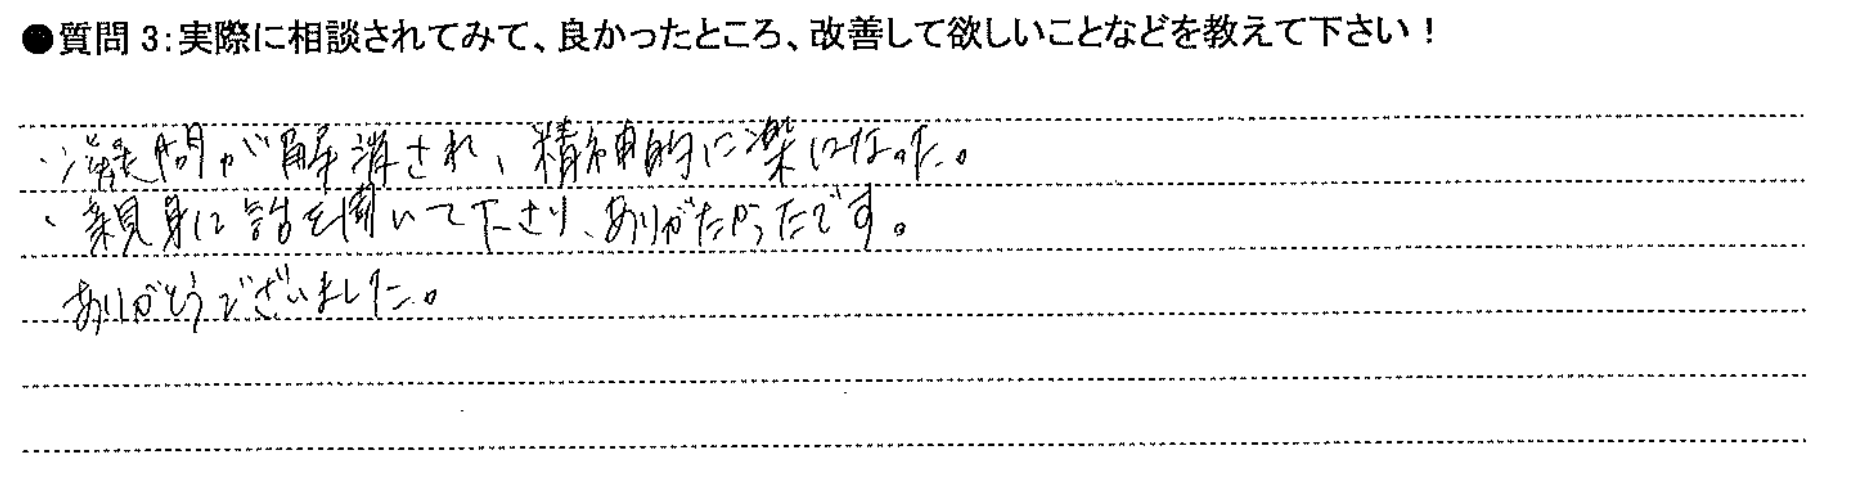 ●質問 3:実際に相談されてみて、良かったところ、改善して欲しいことなどを教えて下さい!
・疑問が解消され、精神的に楽になった。
・親身に話を聞いて下さり、ありがたかったです。
ありがとうございました。